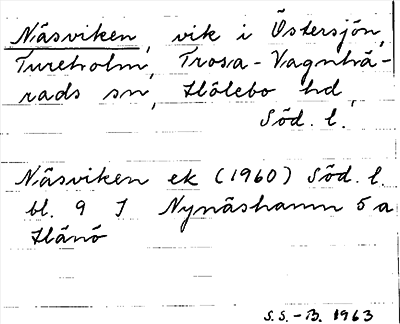 Näsviken, vik i Östersjön,
Tureholm, Trosa-Vagnhä-
rads sn, Hölebo hd,
Söd. l.
Näsviken ek (1960) Söd. l.
bl. 9 I Nynäshamn 5 a
Hånö
S.S.-B. 1963